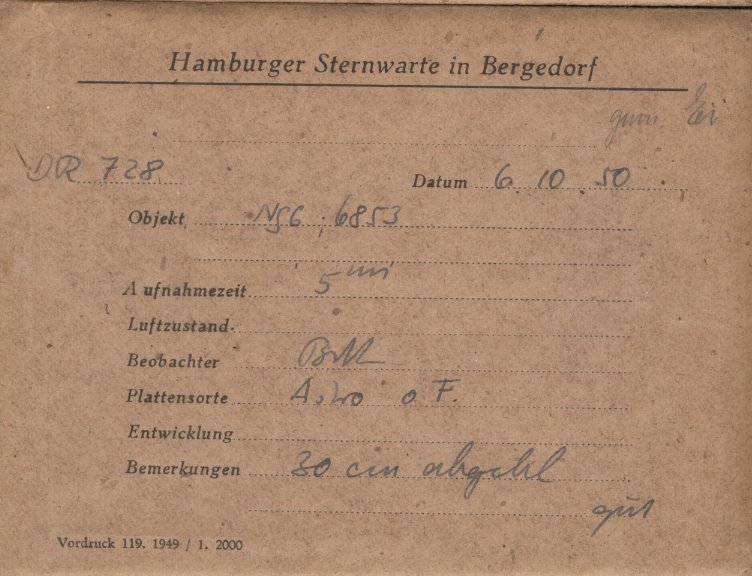 Hamburger Sternwarte in Bergedorf
DR 728
Datum 6. 10. 50
Objekt NGC 6853
Aufnahmezeit 5 min
Luftzustand
Beobachter
Plattensorte Astro o. F.
Entwicklung
Bemerkungen 30 cm abgebl
gut
Vordruck 119. 1949 / 1. 2000